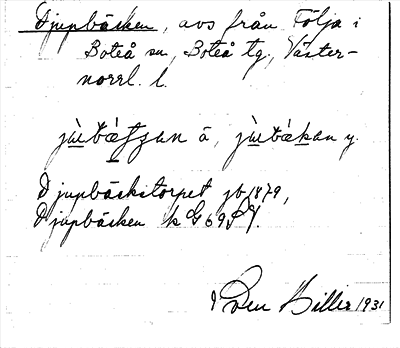 Djupbäcken, avs från Följa i
Boteå sn, Boteå tg, Väster-
norrl. l.
jùbæ̀tʃʃən ä, jùbækan y.
Djupbäckstorpet jb 1879,
Djupbäcken k G 69
Sven Hillir 1931